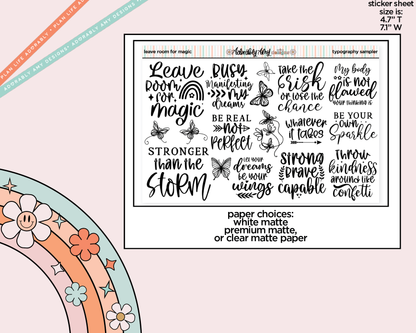 sticker sheet
size is:
4.7" T
7.1" W
PLAN LIFE ADORABLY • ADORABLY AMY DESIGNS!
PLAN LIFE ADORABLY • ADORABLY AMY DESIGNS!
leave room for magic
Adorably Amy
typography sampler
Leave
room
for
magic
Busy
Manifesting
my
dreams
Take the
risk
or lose the
chance
My body
is not
flawed
your thinking is
BE REAL
not
perfect
Whatever
it takes
BE YOUR
OWN
Sparkle
STRONGER
than the
STORM
LET YOUR
dreams
BE YOUR
wings
Strong
brave
capable
Throw
kindness
around like
confetti
paper choices:
white matte
premium matte,
or clear matte paper